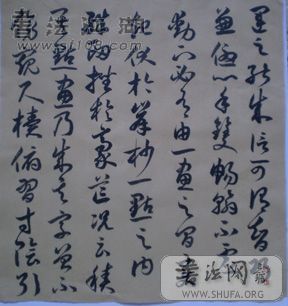 運之能成信可謂智巧
兼優心手雙暢翰不虛
動下必有由一畫之間
起伏於鋒杪一點之內
殊衄挫於毫芒況云積
其點畫乃成其字曾不
傍窺尺牘俯習寸陰引
書法江湖
www.sf108.com
書法网
WWW.SHUFA.ORG